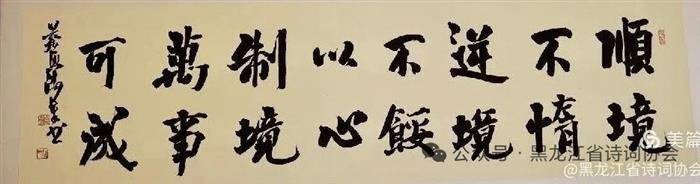 順境
不惰
逆境
不餒
以心
制境
萬事
可成
美篇
公众号·黑龙江省诗词协会
@黑龙江省诗词协会